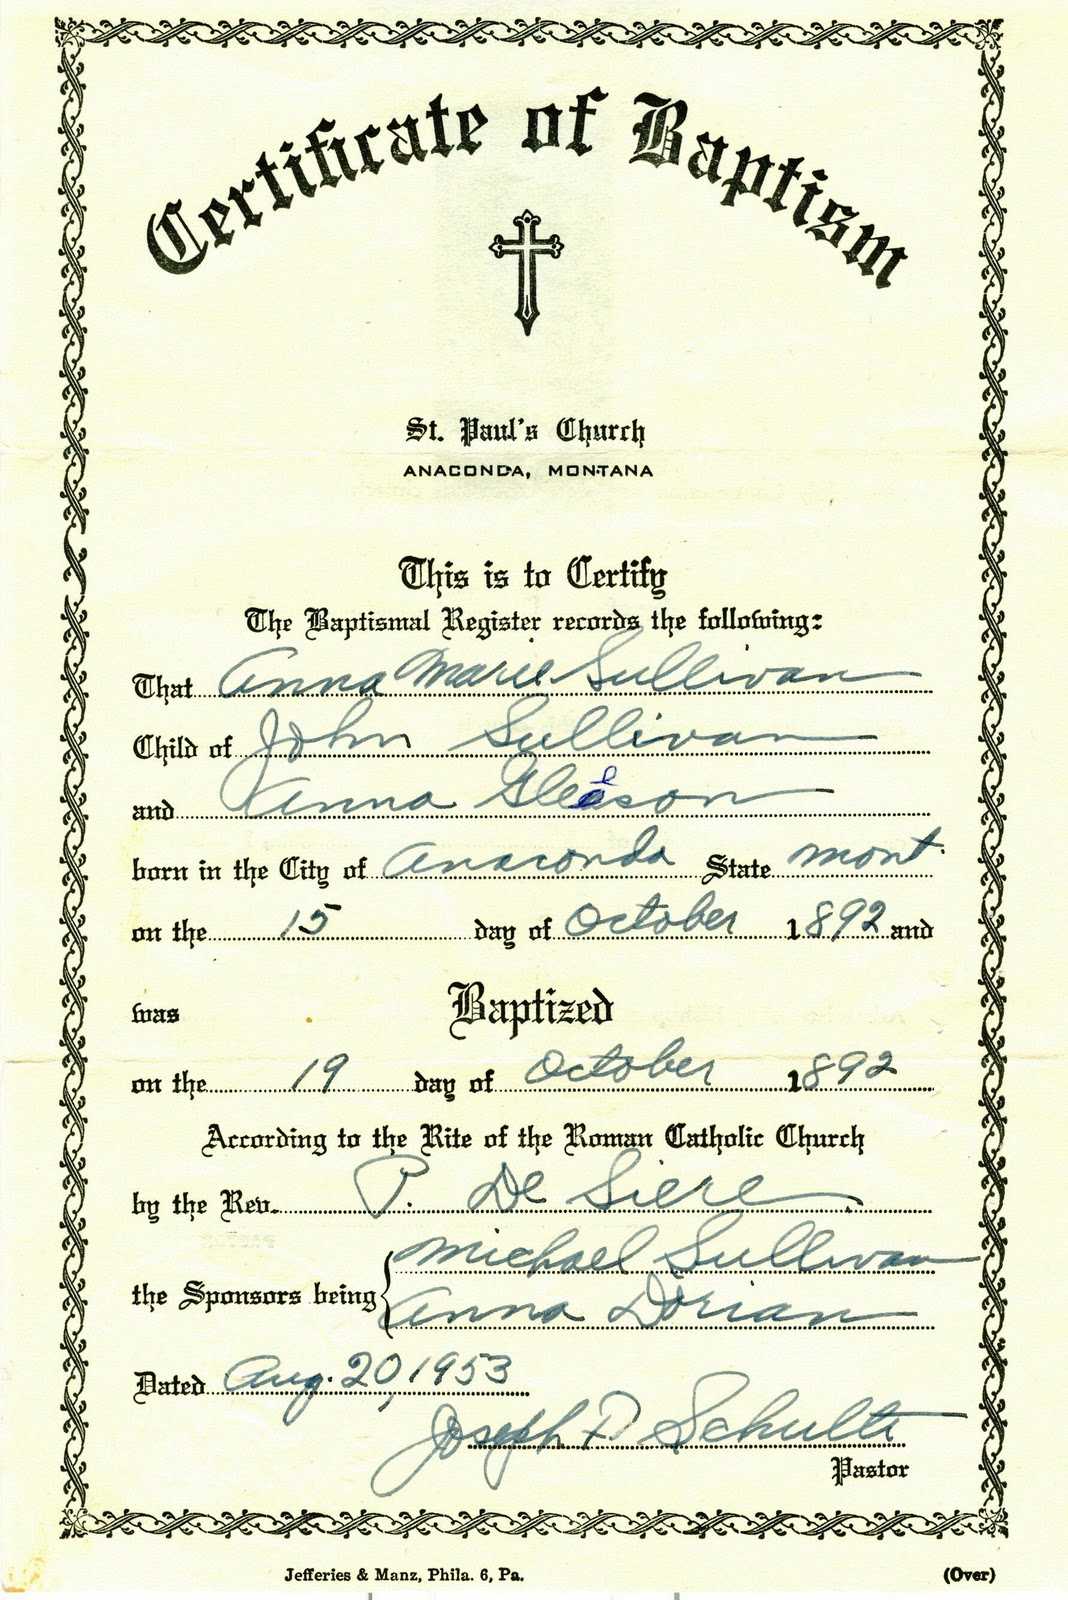 Certificate of Baptism
St. Paul's Church
ANACONDA, MONTANA
This is to Certify
The Baptismal Register records the following:
That Anna Marie Sullivan
Child of John Sullivan
and Anna Gleeson
born in the City of Anaconda State Mont.
on the 15 day of October 1892 and
was Baptized
on the 19 day of October 1892
According to the Rite of the Roman Catholic Church
by the Rev. P. De Siere
Michael Sullivan
the Sponsors being
Anna Dorian
Dated Aug. 20, 1953
Joseph P Schulte
Pastor
Jefferies & Manz, Phila. 6, Pa. (Over)